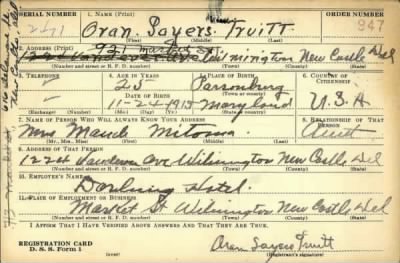 SERIAL NUMBER
1. NAME (Print)
ORDER NUMBER
2271
Oran Sayers Truitt
947
(First) (Middle) (Last)
2. ADDRESS (Print)
921 Market St
Wilmington New Castle Del
(Number and street or R. F. D. number) (Town) (County) (State)
3. TELEPHONE
4. AGE IN YEARS
5. PLACE OF BIRTH
6. COUNTRY OF CITIZENSHIP
25
Parsonsburg
DATE OF BIRTH
11-24-1915
Maryland
U.S.A
(Exchange) (Number) (Mo.) (Day) (Yr.) (State or country)
7. NAME OF PERSON WHO WILL ALWAYS KNOW YOUR ADDRESS
8. RELATIONSHIP OF THAT PERSON
Mrs Maude
Aunt
(Mr., Mrs., Miss) (First) (Middle) (Last)
9. ADDRESS OF THAT PERSON
1224 Ave Wilmington New Castle Del
(Number and street or R. F. D. number) (Town) (County) (State)
10. EMPLOYER'S NAME
Hotel
11. PLACE OF EMPLOYMENT OR BUSINESS
Market St Wilmington New Castle Del
(Number and street or R. F. D. number) (Town) (County) (State)
I AFFIRM THAT I HAVE VERIFIED ABOVE ANSWERS AND THAT THEY ARE TRUE.
REGISTRATION CARD
D. S. S. Form 1
Oran Sayers Truitt
(Registrant's signature)